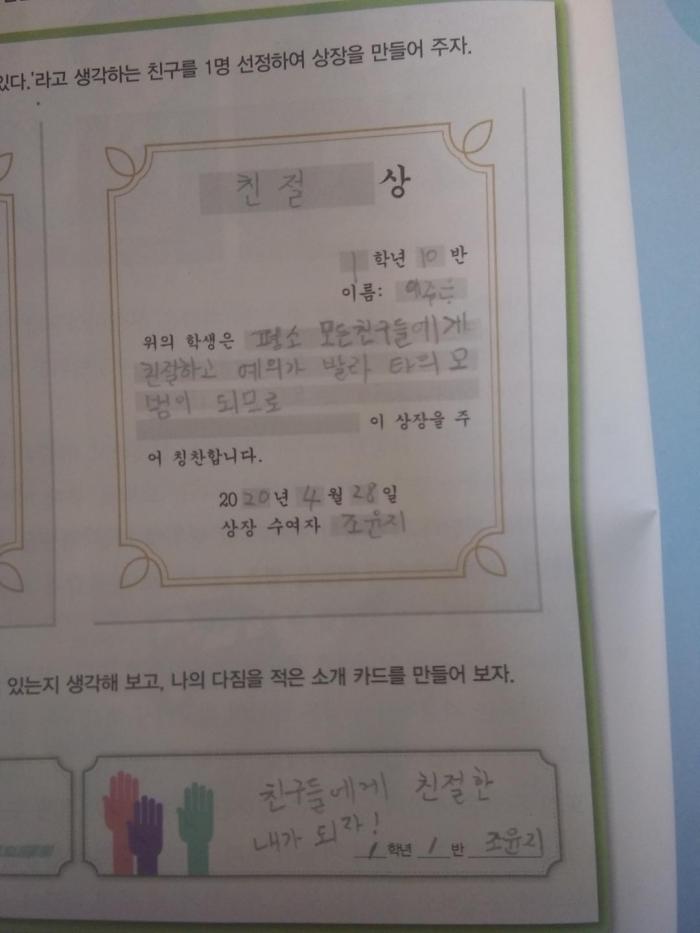 있다.'라고 생각하는 친구를 1명 선정하여 상장을 만들어 주자.
친절 상
1 학년 10 반
이름:
위의 학생은 평소 모든친구들에게
친절하고 예의가 발라 타의 모
범이 되므로
이 상장을 주
어 칭찬합니다.
2020년 4월 28일
상장 수여자 조윤지
있는지 생각해 보고, 나의 다짐을 적은 소개 카드를 만들어 보자.
친구들에게 친절한
내가 되자!
1 학년 1 반 조윤지